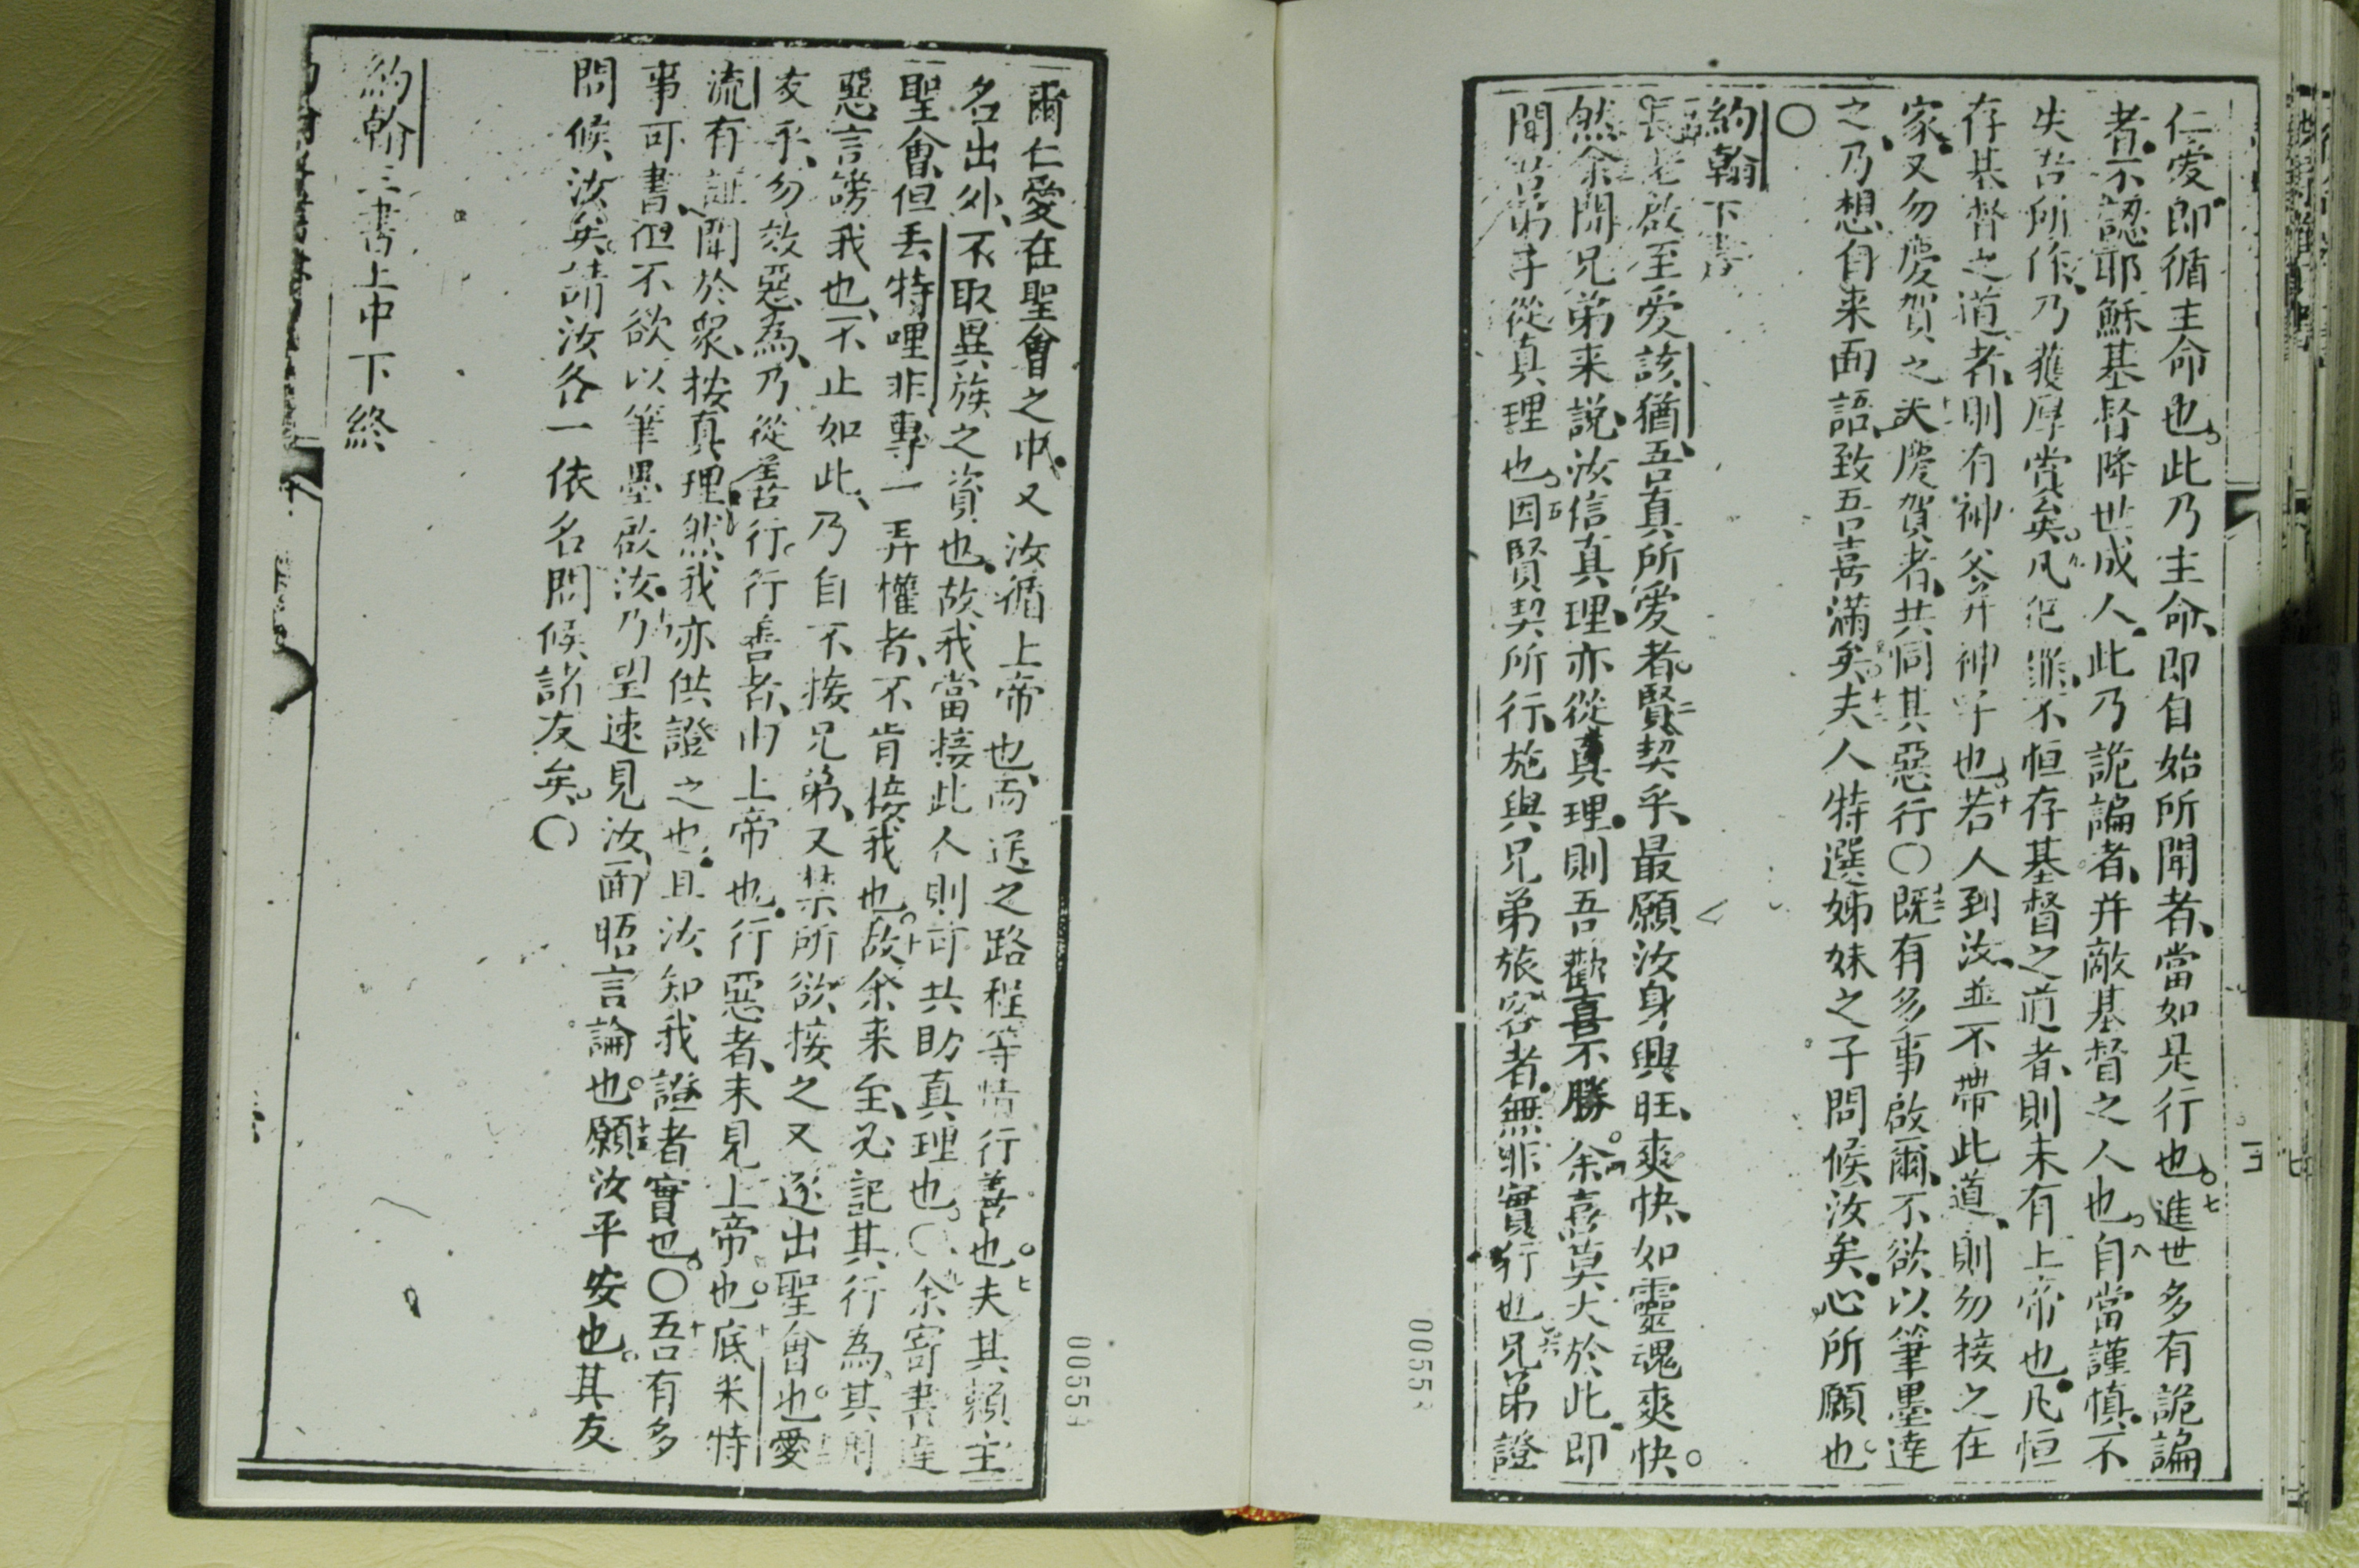 仁愛、即循主命也。此乃主命、即自始所聞者、當如是行也。七進世多有詭諞
者、不認耶穌基督降世成人、此乃詭諞者、并敵基督之人也。八自當謹慎、不
失吾所作、乃獲厚賞矣。九凡犯罪、不恒存基督之道者、則未有上帝也、凡恒
存基督之道者、則有神爷并神子也。十若人到汝、並不帶此道、則勿接之在
家、又勿慶賀之、十一夫慶賀者、共同其惡行〇十二既有多事啟爾、不欲以筆墨達
之、乃想自来面語、致吾喜滿矣。十三夫人特選姊妹之子問候汝矣、心所願也。
〇
約翰下書
長老啟至爱該猶、吾真所爱者。二賢契乎、最願汝身興旺、爽快、如靈魂爽快。
然余聞兄弟来說、汝信真理、亦從真理、則吾歡喜不勝。四余喜莫大於此、即
聞吾弟子從真理也。五因賢契所行、施與兄弟旅客者、無非實行也六兄弟證
爾仁愛在聖會之中、又汝循上帝也、而送之路程等情行善也。七夫其賴主
名出外、不取異族之資也、故我當接此人則可共助真理也。〇九余寄書達
聖會、但丢特哩非專一弄權者、不肯接我也。十故余来至、必記其行為、其用
惡言謗我也、不止如此、乃自不接兄弟、又禁所欲接之又逐出聖會也。十一愛
友乎、勿效惡為、乃從善行。行善者、由上帝也、行惡者、未見上帝也。十二底米特
流有証聞於衆、按真理、然我亦供證之也、且汝知我證者實也。〇十三吾有多
事可書、但不欲以筆墨啟汝、十四乃望速見汝、面晤言論也。十五願汝平安也。其友
問候汝矣。請汝各一依名問候諸友矣。〇
約翰三書上中下終
0055
0055